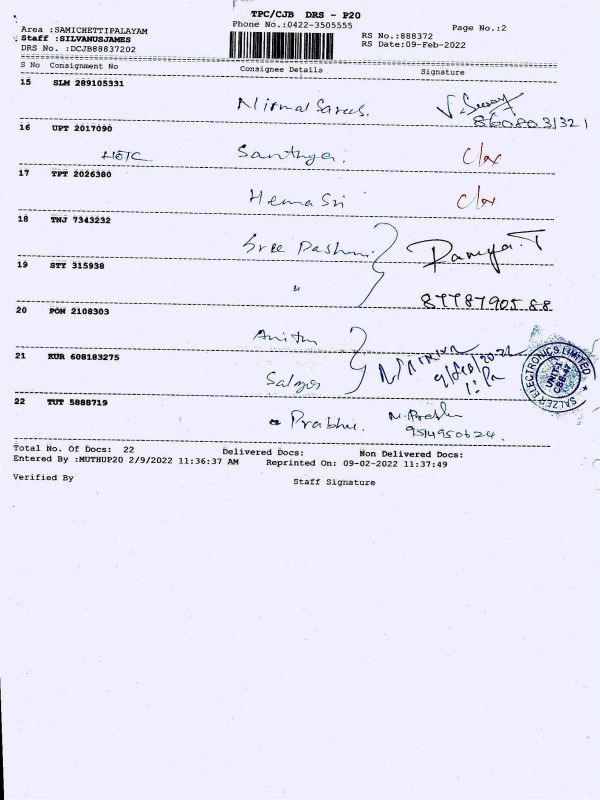 TPC/CJB DRS - P20
Phone No.:0422-3505555
Page No.:2
Area :SAMICHETTIPALAYAM
Staff :SILVANUSJAMES
DRS No. :DCJB88837202
RS No.:888372
RS Date:09-Feb-2022
S No Consignment No Consignee Details Signature
15 SLM 289105331
Nirmal Sarees.
8608031321
16 UPT 2017090
Santhya.
17 TPT 2026380
Hema Sri
18 TNJ 7343232
Sree Dashni Ramya.T
19 STT 315938
"
8778790588
20 PON 2108303
Anith
21 KUR 608183275
Salzer
SALZER ELECTRONICS LIMITED
22 TUT 5888719
Prabhu.
Total No. Of Docs: 22 Delivered Docs: Non Delivered Docs:
Entered By :MUTHUP20 2/9/2022 11:36:37 AM Reprinted On: 09-02-2022 11:37:49
Verified By Staff Signature